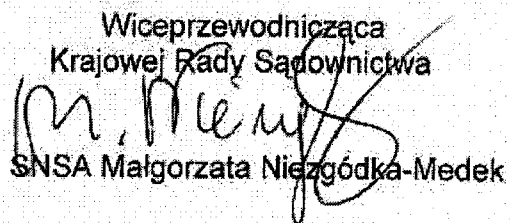 Wiceprzewodnicząca
Krajowej Rady Sądownictwa
SNSA Małgorzata Niezgódka-Medek